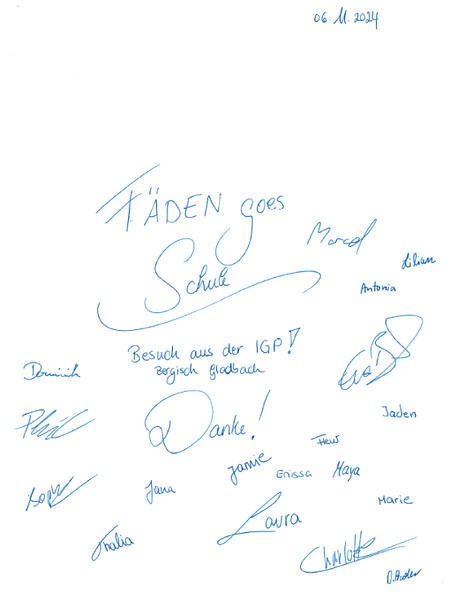 06.11.2024
FÄDEN goes
Schule
Marcel
Lilian
Antonia
Besuch aus der IGP!
Bergisch Gladbach
Dominik
Danke!
Jaden
Jamie
Enissa
Maya
Jana
Marie
Laura
Thalia
Charlotte